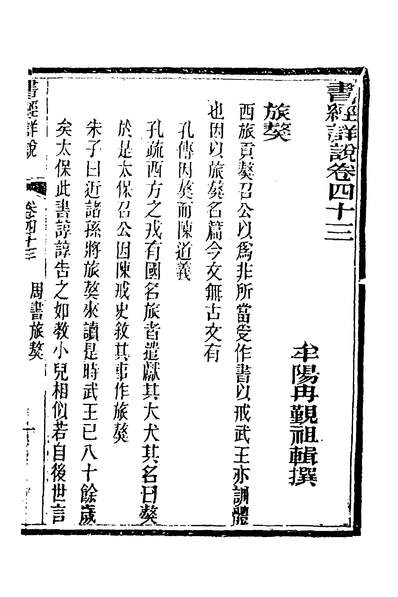 書經詳說卷四十三
牟陽冉覲祖輯撰
旅獒
西旅貢獒召公以為非所當受作書以戒武王亦訓體
也因以旅獒名篇今文無古文有
孔傳因獒而陳道義
孔疏西方之戎有國名旅者遣獻其大犬其名曰獒
於是太保召公因陳戒史敘其事作旅獒
朱子曰近諸孫將旅獒來讀是時武王已八十餘歲
矣太保此書諄諄告之如教小兒相似若自後世言
書經詳說
卷四十三
周書旅獒
一